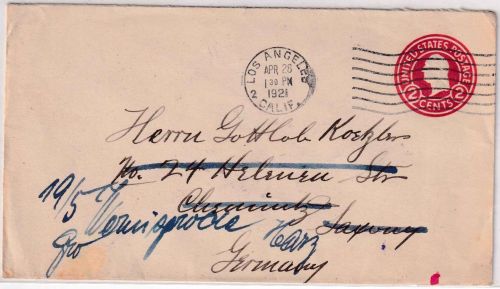 LOS ANGELES
2 CALIF.
APR 26
1 30 PM
1921
UNITED STATES POSTAGE
2 CENTS 2
Herrn Gottlob Koezlers
No. 24 Helenen Str
Chemnitz Saxony
19/5 Wernigerode Harz
Germany